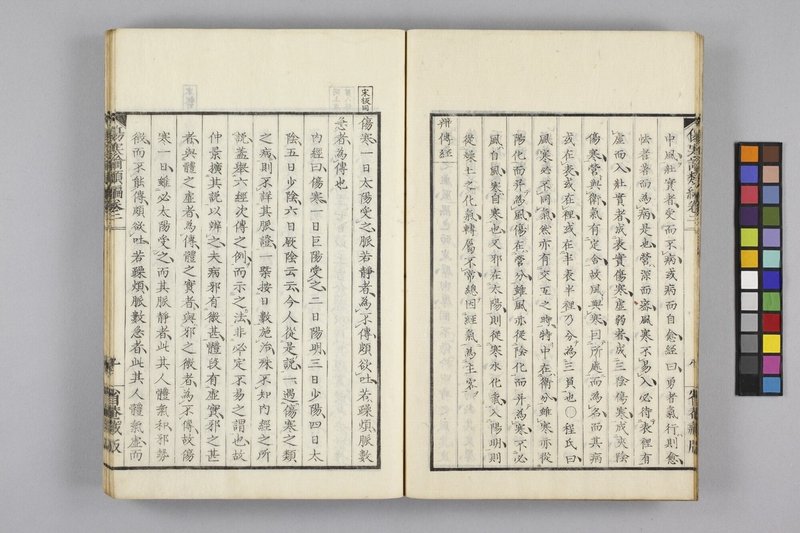 中風壯實者受而不病或病而自愈經曰勇者氣行則愈
怯者著而為病是也營深而密風寒不易入必待來裡有
虛而入壯實者成表實傷寒虛弱者成三陰傷寒成夾陰
傷寒營與衛氣有定舍故風與寒因所處而為名而其病
或在表或在裡或在半表半裡乃分為三員也〇程氏曰
風寒必不同氣然亦有交互之時特中在衛分雖寒亦從
陽化而并為風傷在營分雖風亦從陰化而并為寒不必
風自風寒自寒也又邪在太陽則從寒水化氣入陽明則
從燥土之化氣轉屬不常總因經氣為主客
辨傳經
傷寒論類編卷二
省耆藏版
宋板同
傷寒一日太陽受之脈若靜者為不傳頗欲吐若躁煩脈數
急者為傳也
內經曰傷寒一日巨陽受之二日陽明三日少陽四日太
陰五日少陰六日厥陰云云今人從是說一遇傷寒之類
之病則不詳其脈證一槩按日數施治殊不知內經之所
說蓋舉六經次傳之例而示之法非必定不易之謂也故
仲景擴其說以辨之夫病邪有微甚體段有虛實邪之甚
者與體之虛者為傳體之實者與邪之微者為不傳故傷
寒一日雖必太陽受之而其脈靜者此其人體氣和邪勢
微而不能傳頗欲吐若躁煩脈數急者此其人體氣虛而
傷寒論類編卷二
省耆藏版